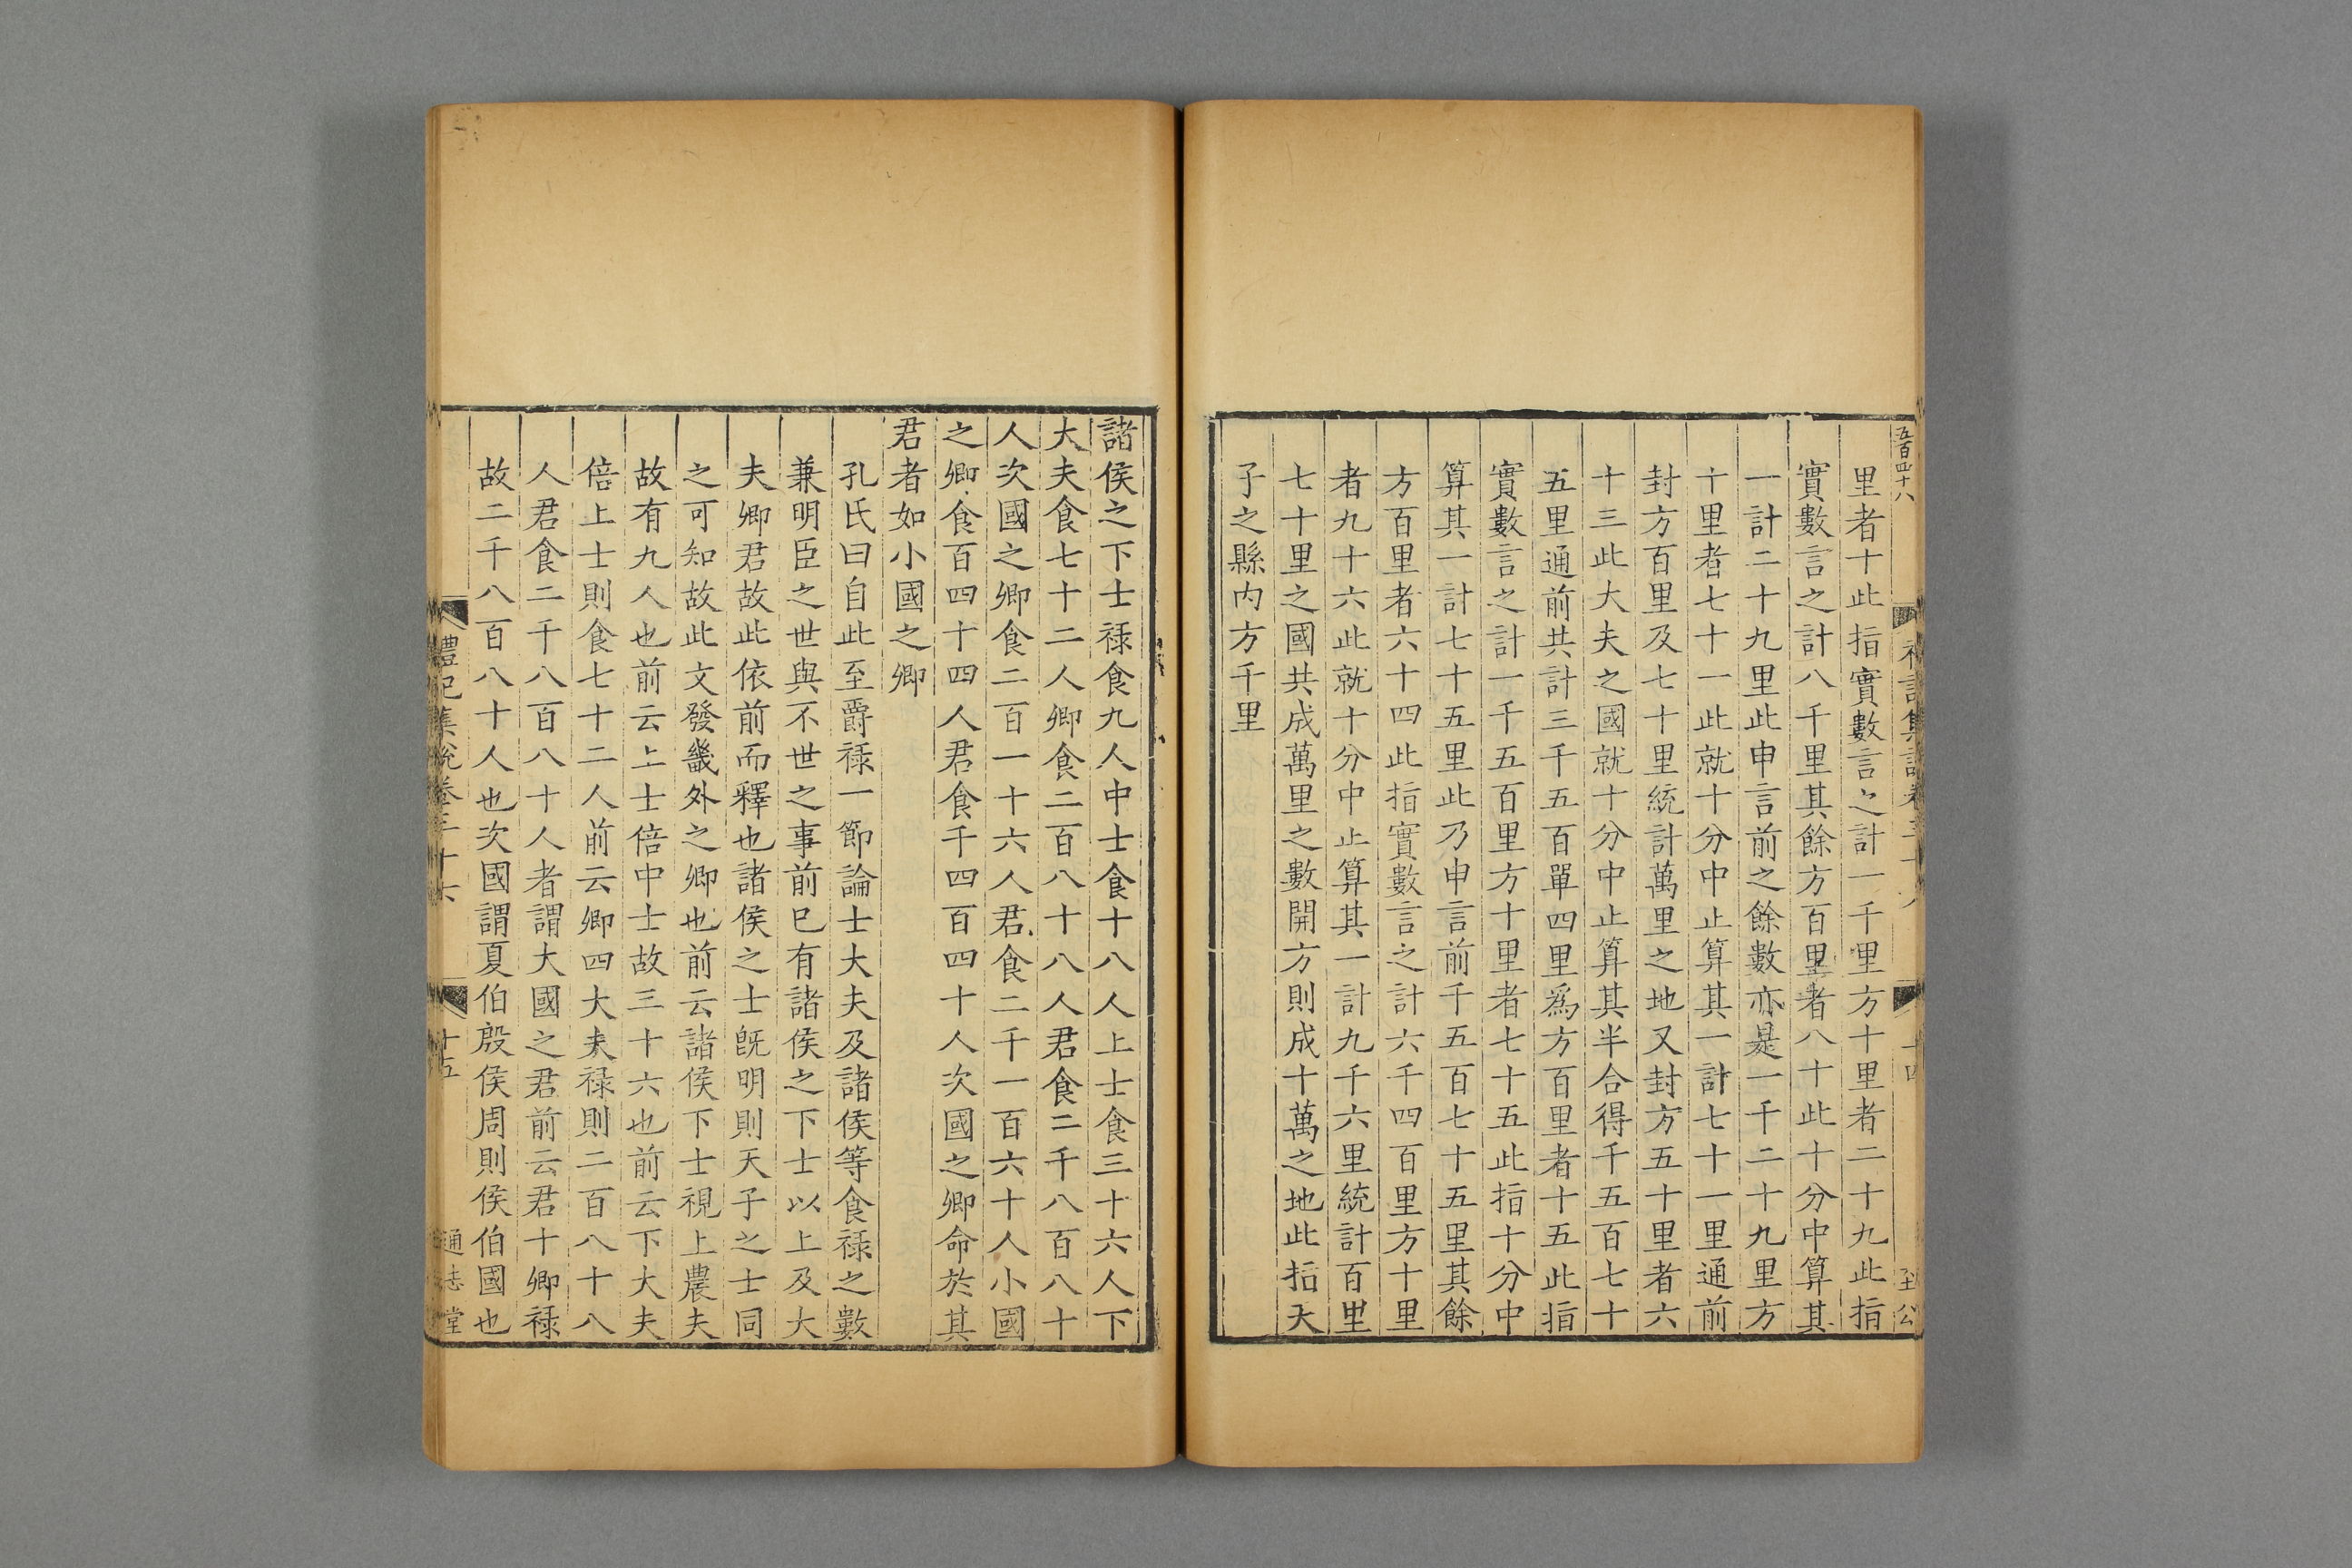 五百四十八
里者十此指實數言之計一千里方十里者二十九此指
實數言之計八千里其餘方百里者八十此十分中算其
一計二十九里此申言前之餘數亦是一千二十九里方
十里者七十一此就十分中止算其一計七十一里通前
封方百里及七十里統計萬里之地又封方五十里者六
十三此大夫之國就十分中止算其半合得千五百七十
五里通前共計三千五百單四里爲方百里者十五此指
實數言之計一千五百里方十里者七十五此指十分中
算其一計七十五里此乃申言前千五百七十五里其餘
方百里者六十四此指實數言之計六千四百里方十里
者九十六此就十分中止算其一計九千六里統計百里
七十里之國共成萬里之數開方則成十萬之地此指天
子之縣内方千里
諸侯之下士祿食九人中士食十八人上士食三十六人下
大夫食七十二人卿食二百八十八人君食二千八百八十
人次國之卿食二百一十六人君食二千一百六十人小國
之卿食百四十四人君食千四百四十人次國之卿命於其
君者如小國之卿
孔氏曰自此至爵祿一節論士大夫及諸侯等食祿之數
兼明臣之世與不世之事前已有諸侯之下士以上及大
夫卿君故此依前而釋也諸侯之士既明則天子之士同
之可知故此文發畿外之卿也前云諸侯下士視上農夫
故有九人也前云上士倍中士故三十六也前云下大夫
倍上士則食七十二人前云卿四大夫祿則二百八十八
人君食二千八百八十人者謂大國之君前云君十卿祿
故二千八百八十人也次國謂夏伯殷侯周則侯伯國也
禮記集說卷三十六 十五 通志堂